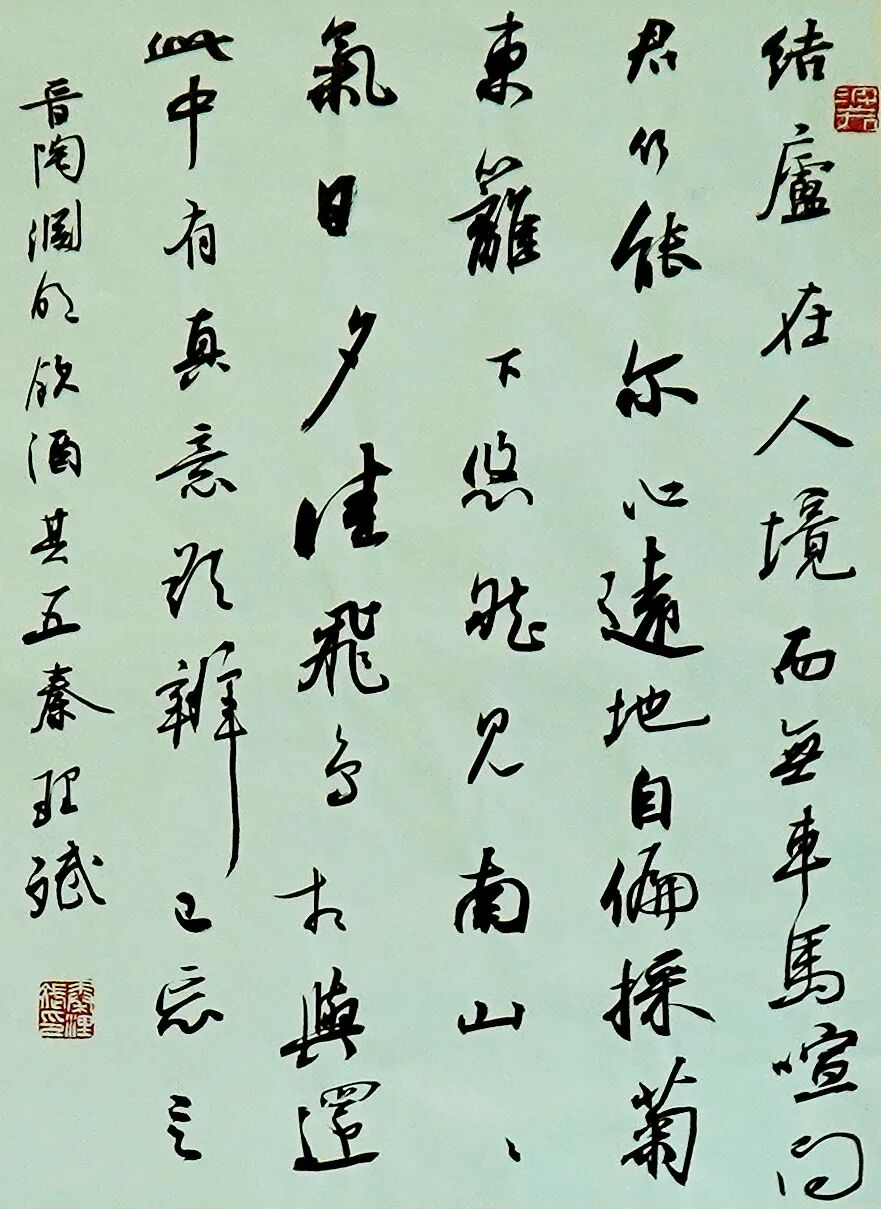 結廬在人境而無車馬喧問
君何能尔心遠地自偏採菊
東籬下悠然見南山、
氣日夕佳飛鳥相與還
此中有真意欲辨已忘言
晋陶淵明飲酒其五秦理斌